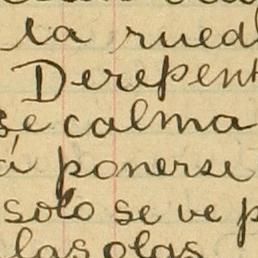 la rued
Derepent
se calma
á ponerse
solo se ve p
las olas